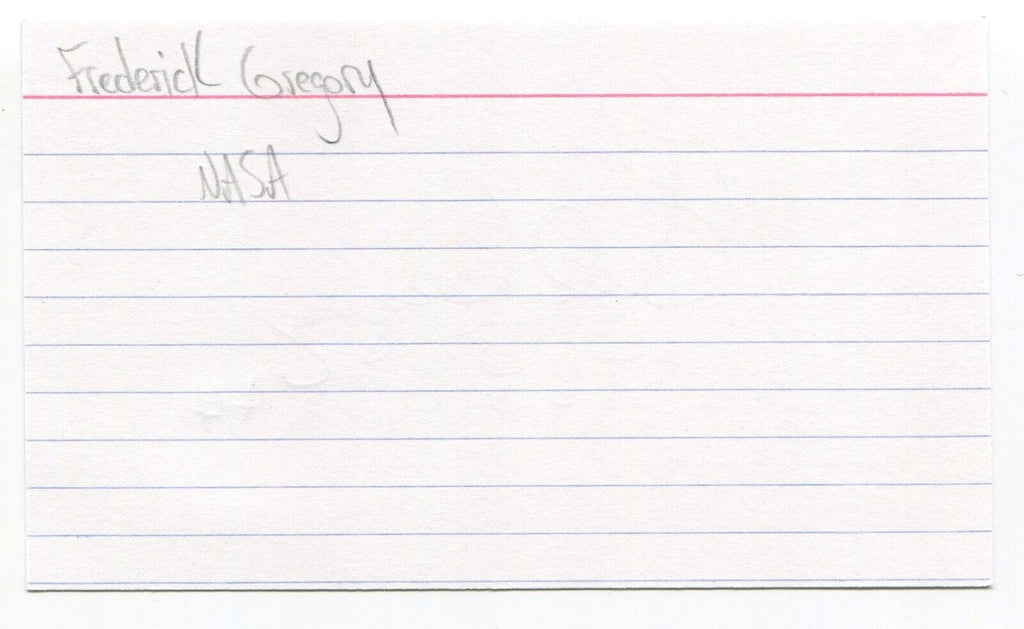 Frederick Gregory
NASA